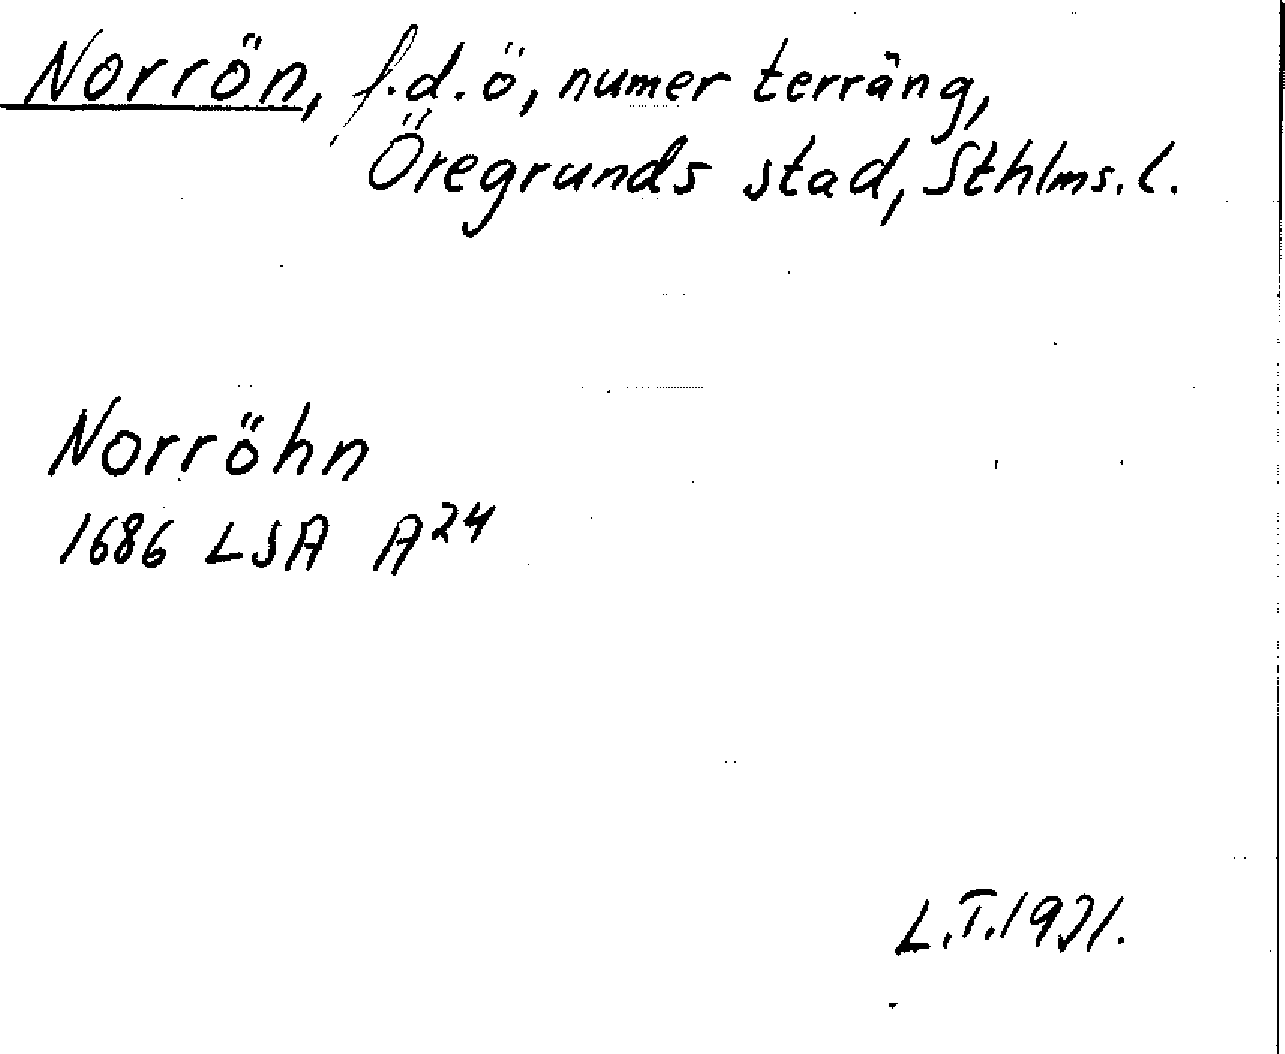 Norrön, f.d. ö, numer terräng,
Öregrunds stad, Sthlms. l.
Norröhn
1686 LSA A24
L.T. 1931.